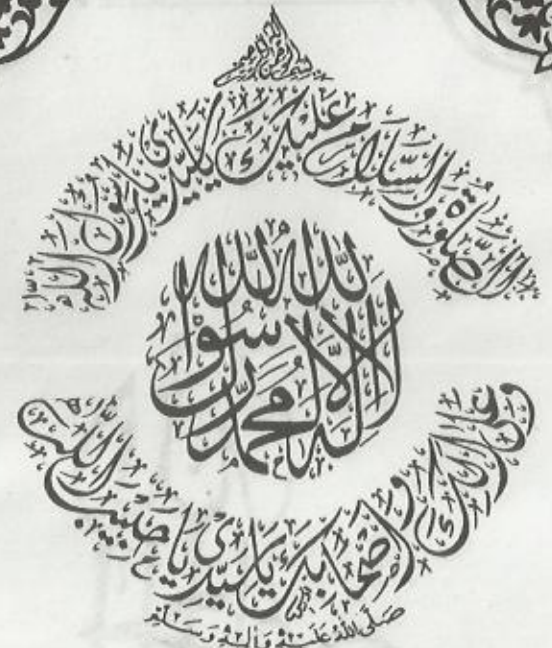 بسم الله الرحمن الرحيم
الصلوة والسلام عليك يا سيدي يا رسول الله
لا اله الا الله محمد رسول الله
وعلى الك واصحابك يا سيدي يا حبيب الله
صلى الله عليه واله وسلم